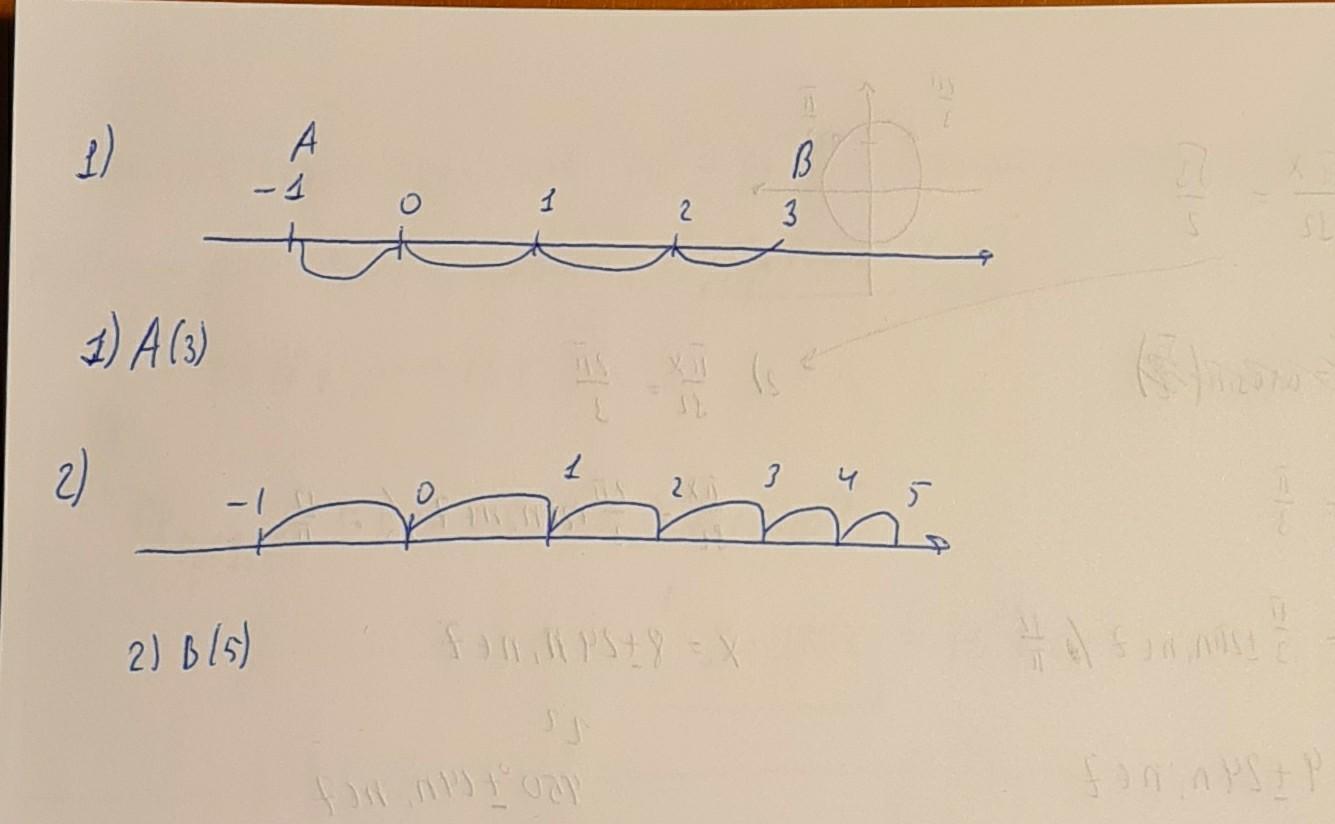 1)
A B
-1 0 1 2 3
1) A(3)
2)
-1 0 1 2 3 4 5
2) B(5)